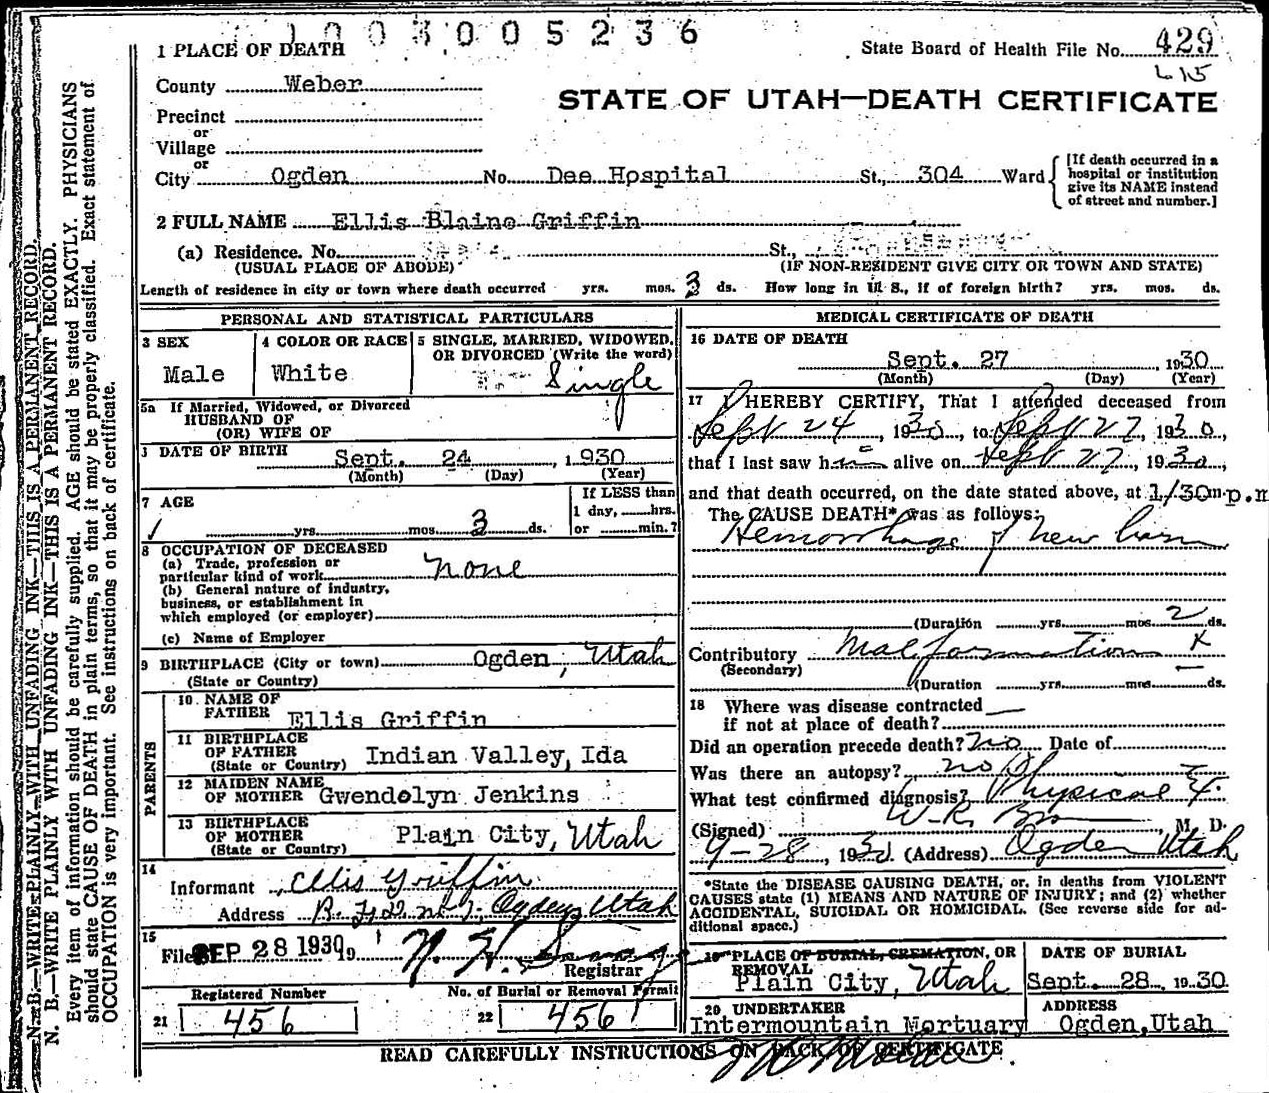 1003005236
1 PLACE OF DEATH
State Board of Health File No. 429
County Weber
STATE OF UTAH—DEATH CERTIFICATE
Precinct
or
Village
or
City Ogden No. Dee Hospital St., 304 Ward
[If death occurred in a
hospital or institution
give its NAME instead
of street and number.]
2 FULL NAME Ellis Blaine Griffin
(a) Residence. No. St.,
(USUAL PLACE OF ABODE) (IF NON-RESIDENT GIVE CITY OR TOWN AND STATE)
Length of residence in city or town where death occurred yrs. mos. 3 ds. How long in U. S., if of foreign birth? yrs. mos. ds.
PERSONAL AND STATISTICAL PARTICULARS
3 SEX
Male
4 COLOR OR RACE
White
5 SINGLE, MARRIED, WIDOWED,
OR DIVORCED (Write the word)
Single
5a If Married, Widowed, or Divorced
HUSBAND OF
(OR) WIFE OF
DATE OF BIRTH Sept. 24, 1930
(Month) (Day) (Year)
7 AGE
yrs. mos. 3 ds.
If LESS than
1 day, hrs.
or min.?
8 OCCUPATION OF DECEASED
(a) Trade, profession or
particular kind of work none
(b) General nature of industry,
business, or establishment in
which employed (or employer)
(c) Name of Employer
9 BIRTHPLACE (City or town) Ogden, Utah
(State or Country)
PARENTS
10 NAME OF
FATHER Ellis Griffin
11 BIRTHPLACE
OF FATHER
(State or Country) Indian Valley, Ida
12 MAIDEN NAME
OF MOTHER Gwendolyn Jenkins
13 BIRTHPLACE
OF MOTHER
(State or Country) Plain City, Utah
14
Informant Ellis Griffin
Address Ogden, Utah
15
Filed SEP 28 1930 19
Registrar
Registered Number
21 456
No. of Burial or Removal Permit
22 456
MEDICAL CERTIFICATE OF DEATH
16 DATE OF DEATH
Sept. 27 1930
(Month) (Day) (Year)
17 I HEREBY CERTIFY, That I attended deceased from
Sept 24, 1930, to Sept 27, 1930,
that I last saw him alive on Sept 27, 1930,
and that death occurred, on the date stated above, at 1/30 m. p.m
The CAUSE DEATH* was as follows:
Hemorrhage of new born
(Duration yrs. mos. 2 ds.
Contributory Malformation
(Secondary)
(Duration yrs. mos. ds.
18 Where was disease contracted
if not at place of death?
Did an operation precede death? no Date of
Was there an autopsy? no
What test confirmed diagnosis? Physical
(Signed) W. R. M. D.
9-28, 1930. (Address) Ogden Utah
*State the DISEASE CAUSING DEATH, or, in deaths from VIOLENT
CAUSES state (1) MEANS AND NATURE OF INJURY; and (2) whether
ACCIDENTAL, SUICIDAL OR HOMICIDAL. (See reverse side for ad-
ditional space.)
19 PLACE OF BURIAL, CREMATION, OR
REMOVAL
Plain City, Utah
DATE OF BURIAL
Sept. 28, 1930
20 UNDERTAKER
Intermountain Mortuary
ADDRESS
Ogden, Utah
READ CAREFULLY INSTRUCTIONS ON BACK OF CERTIFICATE
N. B.—WRITE PLAINLY WITH UNFADING INK—THIS IS A PERMANENT RECORD.
N. B.—WRITE PLAINLY WITH UNFADING INK—THIS IS A PERMANENT RECORD.
Every item of information should be carefully supplied. AGE should be stated EXACTLY. PHYSICIANS
should state CAUSE OF DEATH in plain terms, so that it may be properly classified. Exact statement of
OCCUPATION is very important. See instructions on back of certificate.